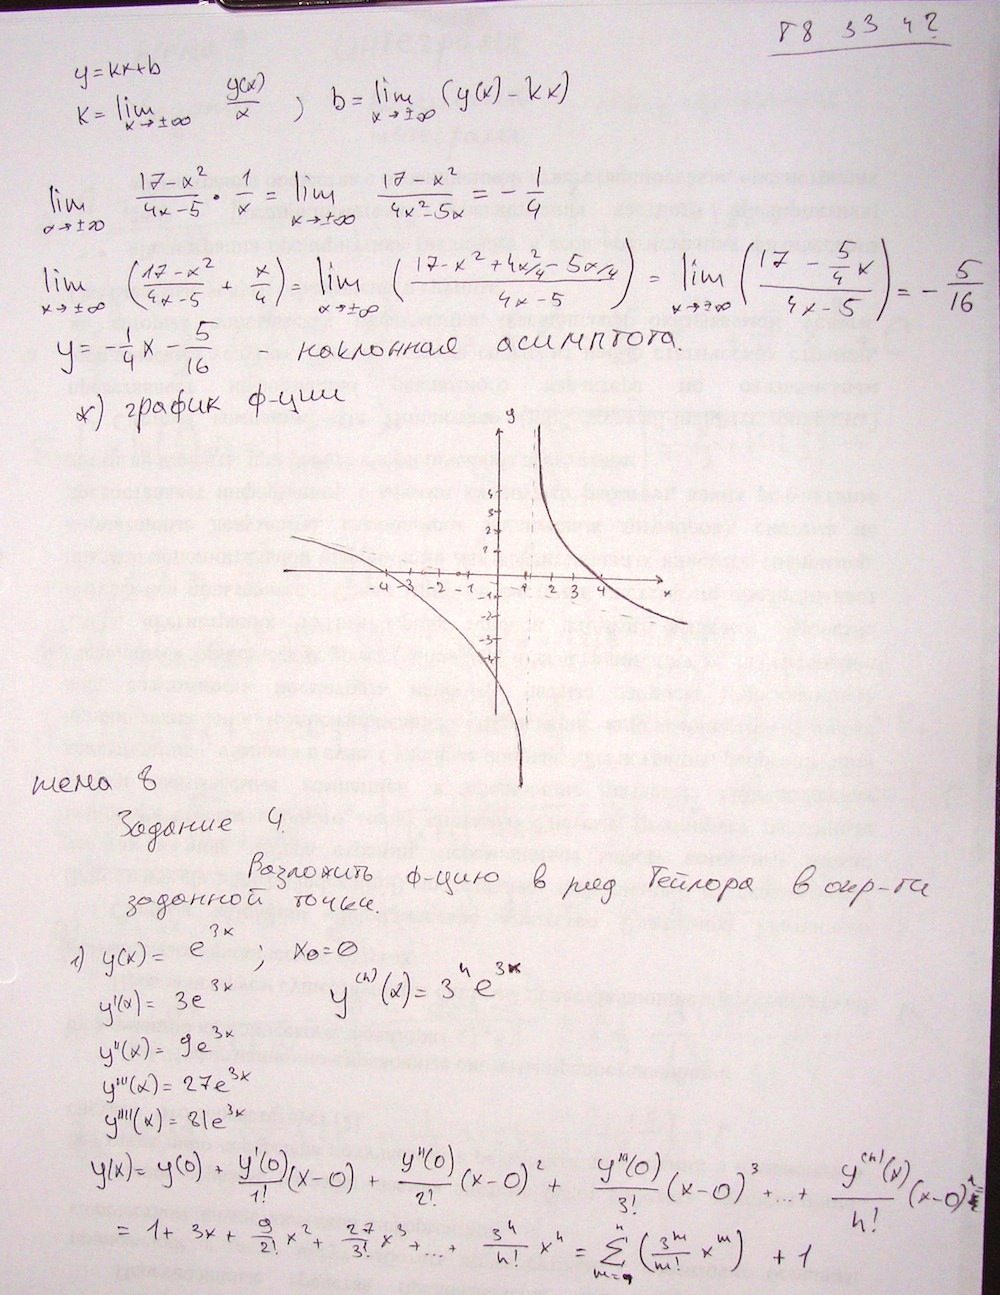 78 33 42
y=kx+b
k = lim x→±∞ y(x)/x ; b = lim x→±∞ (y(x) - kx)
lim x→±∞ (17-x²)/(4x-5) · 1/x = lim x→±∞ (17-x²)/(4x²-5x) = -1/4
lim x→±∞ ((17-x²)/(4x-5) + x/4) = lim x→±∞ ((17-x²+4x²/4-5x/4)/(4x-5)) = lim x→±∞ ((17 - 5/4 x)/(4x-5)) = - 5/16
y = -1/4 x - 5/16 наклонная асимптота.
*) график ф-ции
y
4
3
2
1
-4 -3 -2 -1 1 2 3 4 x
-1
-2
-3
-4
тема 8
Задание 4.
Разложить ф-цию в ряд Тейлора в окр-ти
заданной точки.
1) y(x) = e^{3x} ; x₀=0
y'(x) = 3e^{3x} y^{(n)}(x) = 3^n e^{3x}
y''(x) = 9e^{3x}
y'''(x) = 27e^{3x}
y''''(x) = 81e^{3x}
y(x) = y(0) + y'(0)/1! (x-0) + y''(0)/2! (x-0)² + y'''(0)/3! (x-0)³ +...+ y^{(n)}(x)/n! (x-0)^n =
= 1 + 3x + 9/2! x² + 27/3! x³ +...+ 3^n/n! x^n = Σ (3^m/m! x^m) + 1